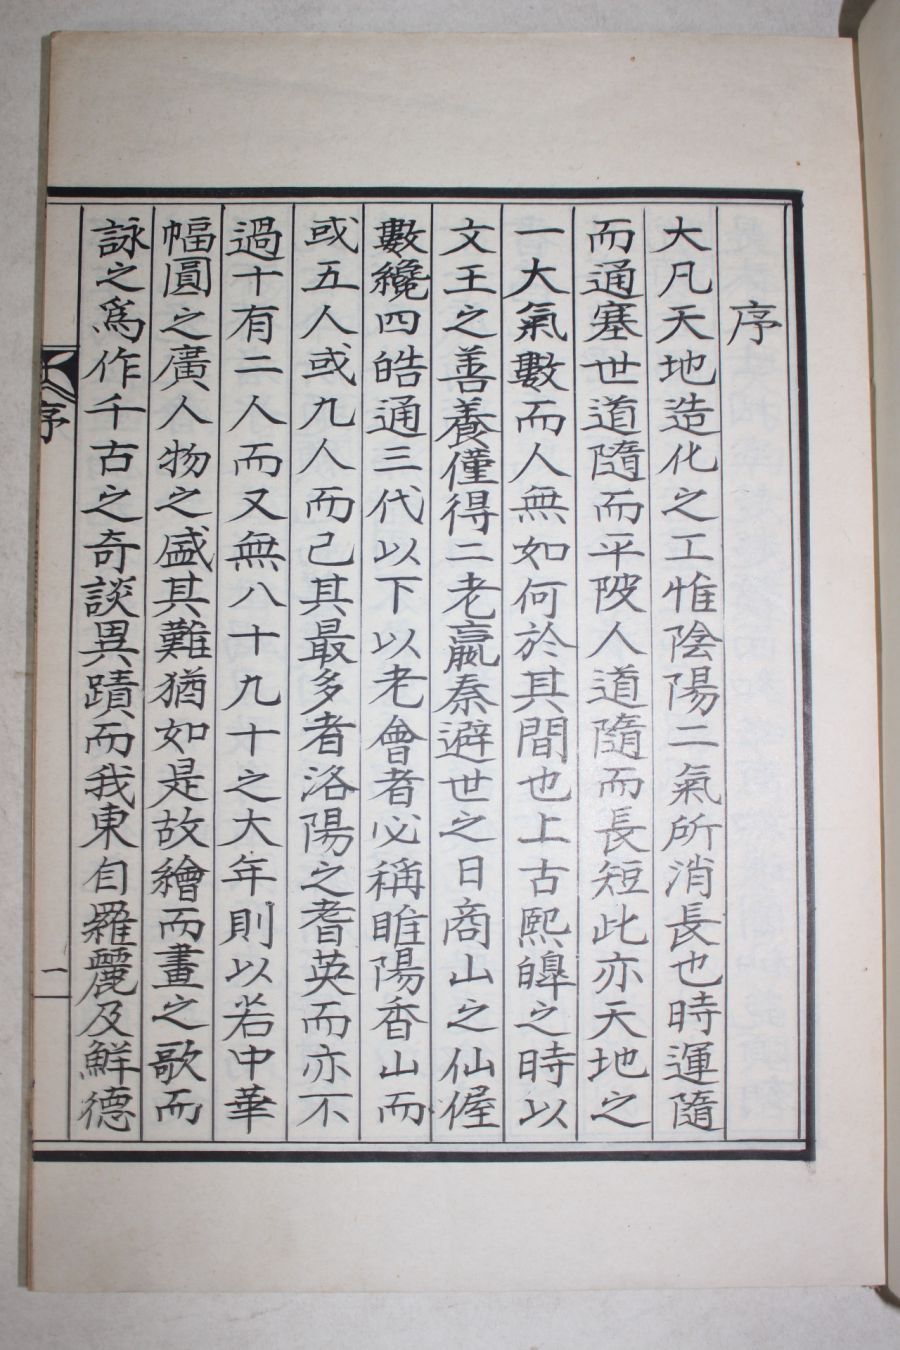 序
大凡天地造化之工惟陰陽二氣所消長也時運隨
而通塞世道隨而平陂人道隨而長短此亦天地之
一大氣數而人無如何於其間也上古熙皞之時以
文王之善養僅得二老嬴秦避世之日商山之仙偓
數纔四皓通三代以下以老會者必稱睢陽香山而
或五人或九人而已其最多者洛陽之耆英而亦不
過十有二人而又無八十九十之大年則以若中華
幅圓之廣人物之盛其難猶如是故繪而畫之歌而
詠之爲作千古之奇談異蹟而我東自羅麗及鮮德
序
一